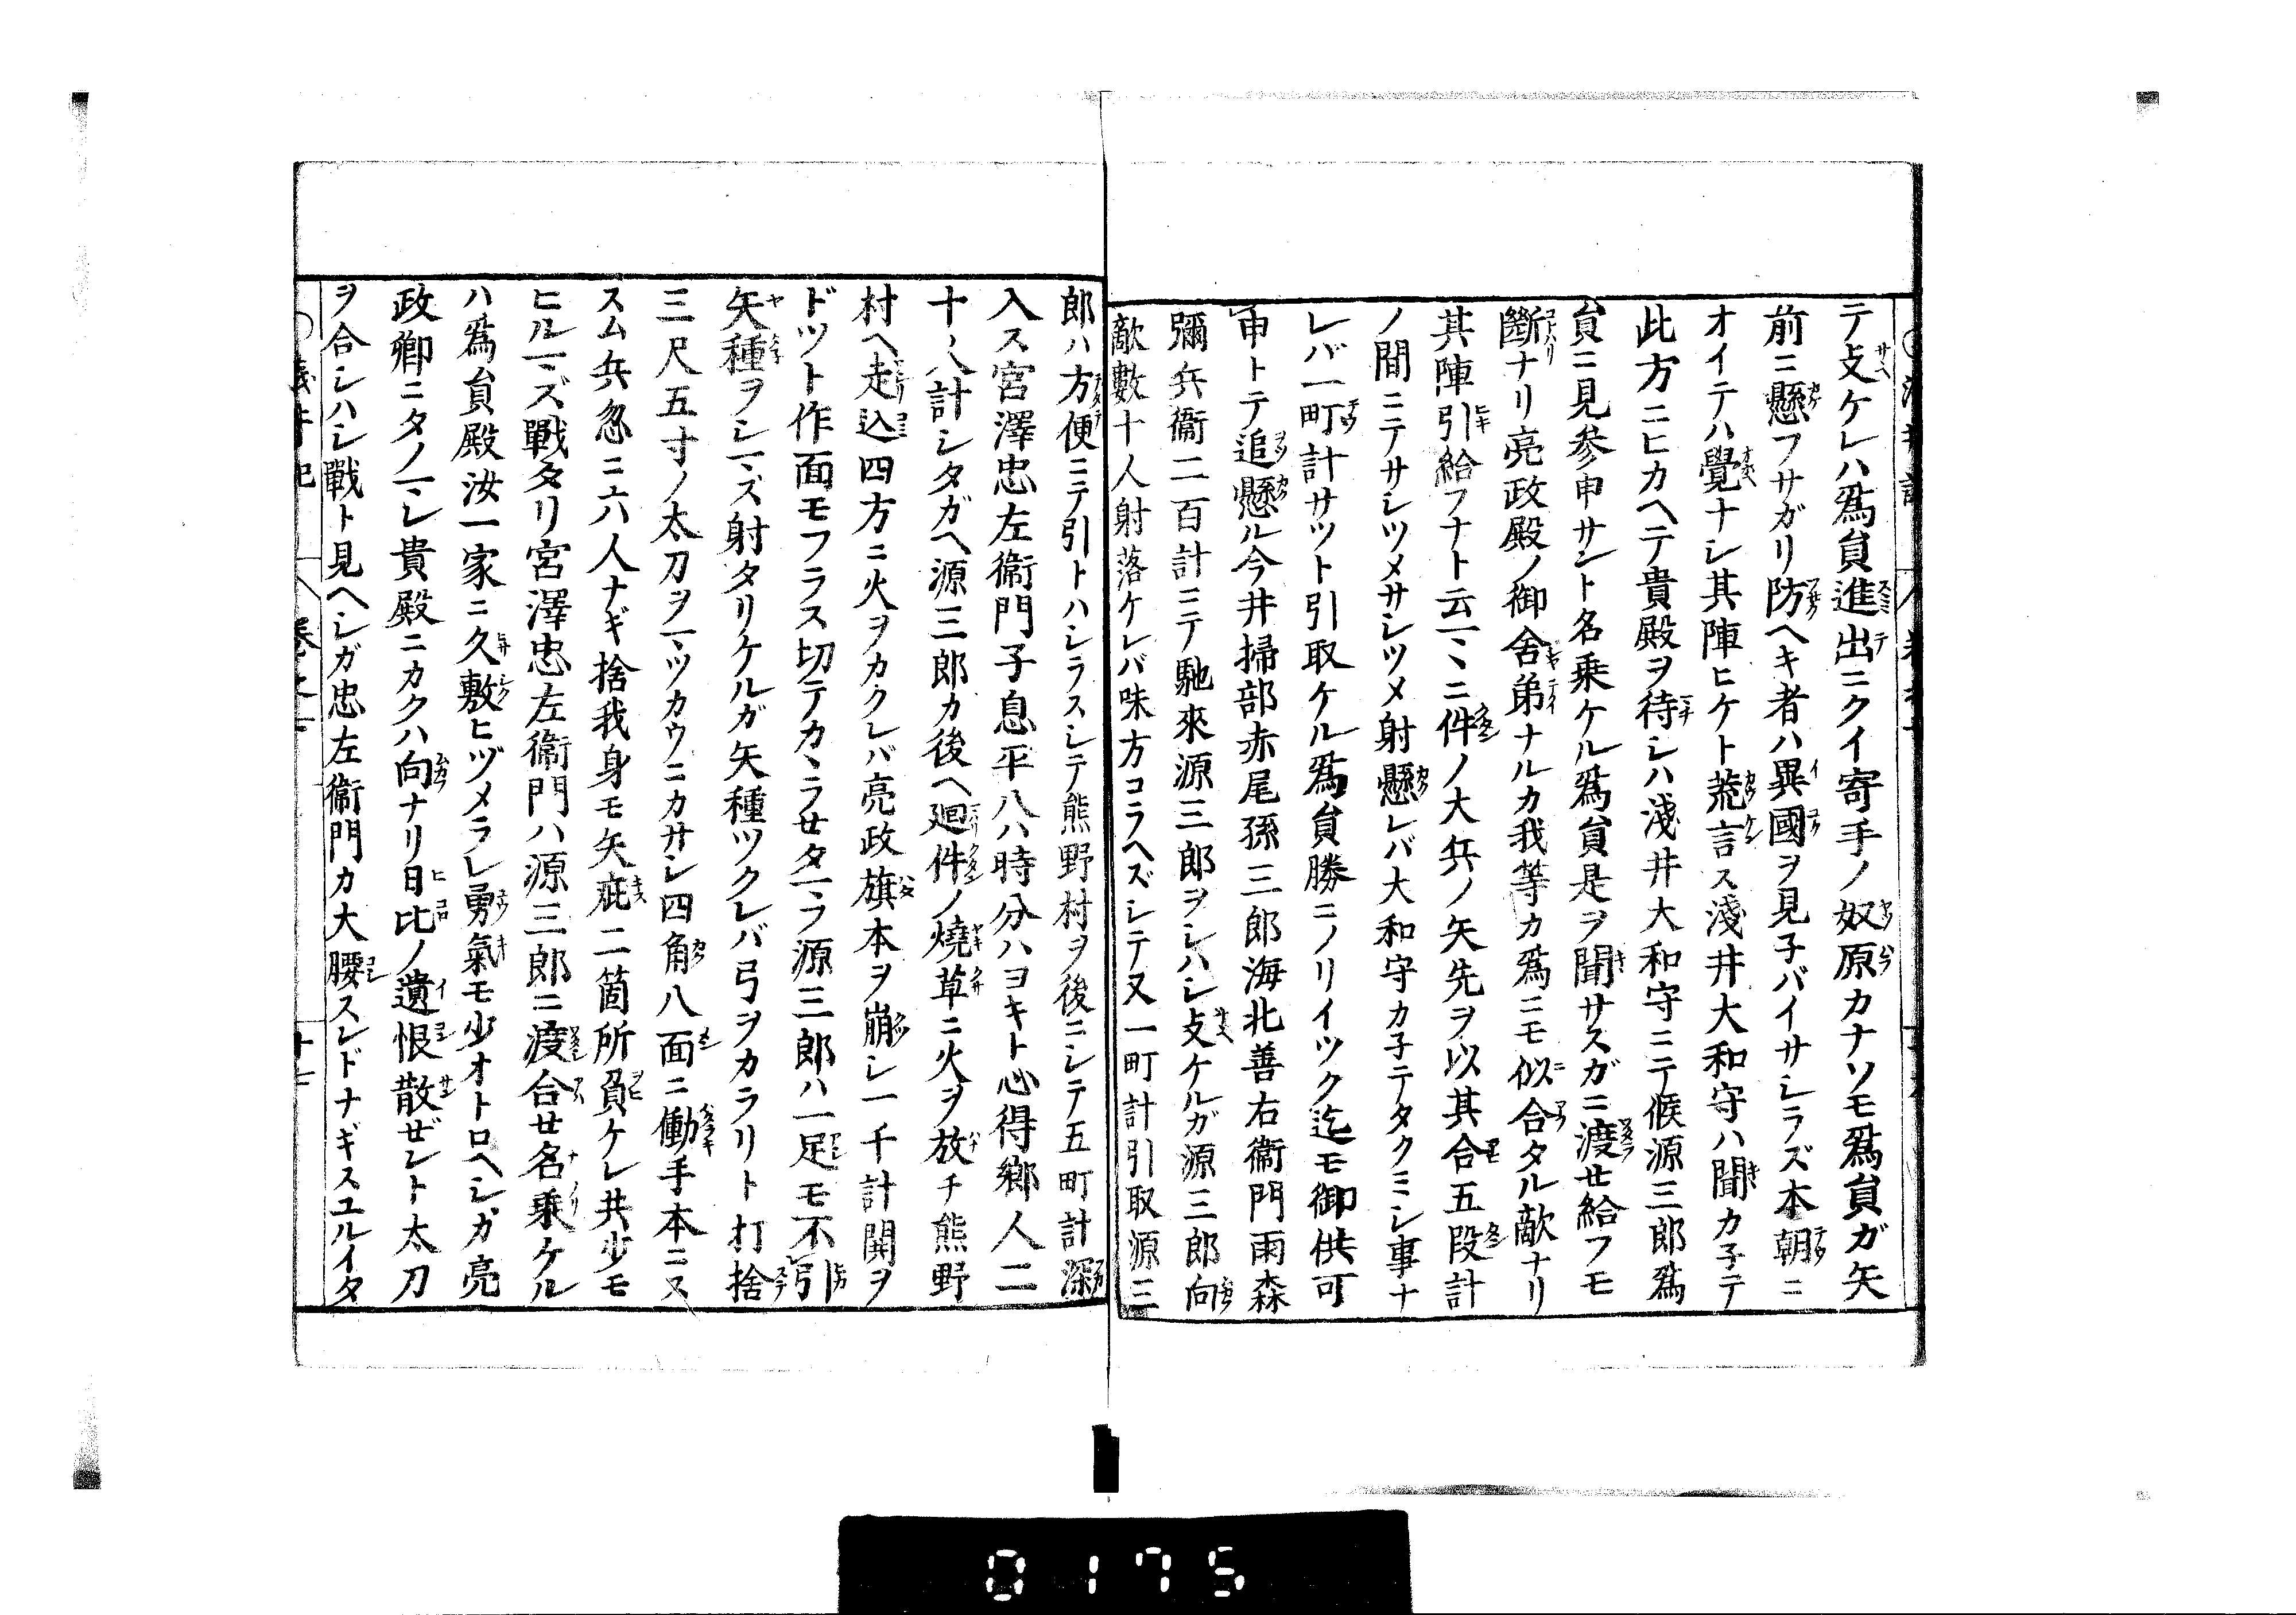 テ攴ケレハ爲貟進出ニクイ寄手ノ奴原カナソモ爲貟ガ矢
前ニ懸フサガリ防ヘキ者ハ異國ヲ見子バイサシラズ本朝ニ
オイテハ覺ナシ其陣ヒケト荒言ス淺井大和守ハ聞カ子テ
此方ニヒカヘテ貴殿ヲ待シハ淺井大和守ニテ候源三郎爲
貟ニ見参申サント名乗ケル爲貟是ヲ聞サスガニ渡せ給フモ
斷ナリ亮政殿ノ御舍弟ナルカ我等カ爲ニモ似合タル敵ナリ
其陣引給フナト云マヽニ件ノ大兵ノ矢先ヲ以其合五段計
ノ間ニテサシツメサシツメ射懸レバ大和守カ子テタクミシ事ナ
レバ一町計サツト引取ケル爲貟勝ニノリイツク迄モ御供可
申トテ追懸ル今井掃部赤尾孫三郎海北善右衞門雨森
彌兵衞二百計ニテ馳來源三郎ヲシハシ攴ケルガ源三郎向
敵數十人射落ケレバ味方コラヘズシテ又一町計引取源三
郎ハ方便ニテ引トハシラスシテ熊野村ヲ後ニシテ五町計深
入ス宮澤忠左衞門子息平八ハ時分ハヨキト心得鄉人二
十人計シタガヘ源三郎カ後ヘ廻件ノ燒草ニ火ヲ放チ熊野
村ヘ走込四方ニ火ヲカクレバ亮政旗本ヲ崩シ一千計鬨ヲ
ドツト作面モフラス切テカヽラせタマフ源三郎ハ一足モ不引
矢種ヲシマズ射タリケルガ矢種ツクレバ弓ヲカラリト打捨
三尺五寸ノ太刀ヲマツカウニカサシ四角八面ニ働手本ニス
スム兵忽ニ六人ナギ捨我身モ矢疵二箇所負ケレ共少モ
ヒルマズ戰タリ宮澤忠左衞門ハ源三郎ニ渡合せ名乗ケル
ハ爲貟殿汝一家ニ久敷ヒヅメラレ勇氣モ少オトロヘシガ亮
政卿ニタノマレ貴殿ニカクハ向ナリ日比ノ遺恨散ぜント太刀
ヲ合シハシ戰ト見ヘシガ忠左衞門カ大腰スレドナギスユルイタ